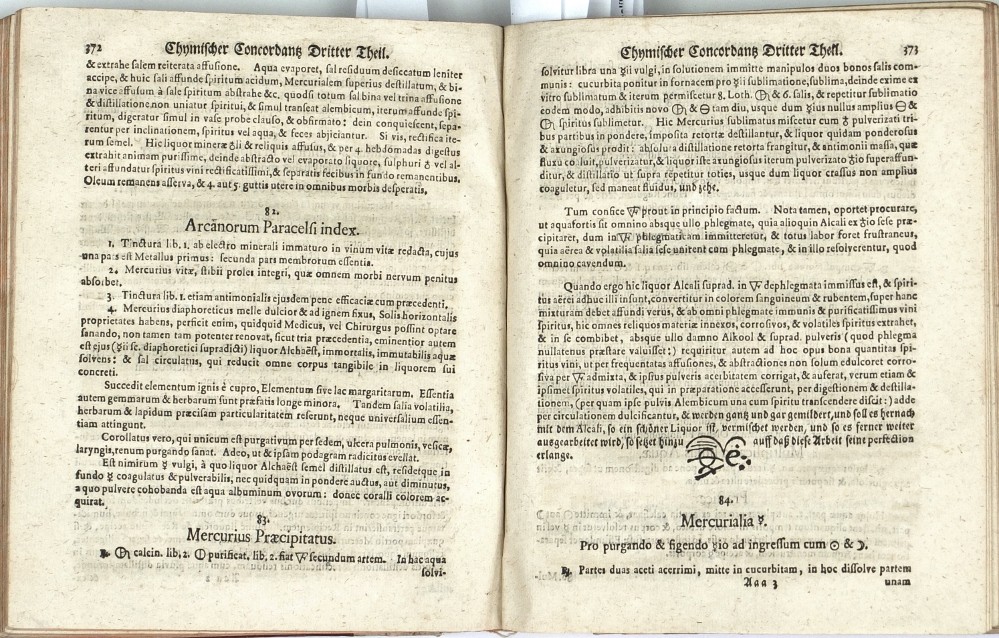 372 Chymischer Concordantz Dritter Theil.
& extrahe salem reiterata affusione. Aqua evaporet, sal residuum desiccatum leniter
accipe, & huic sali affunde spiritum acidum, Mercurialem superius destillatum, & bi-
na vice affusum à sale spiritum abstrahe &c. quodsi totum sal bina vel trina affusione
& distillatione non uniatur spiritui, & simul transeat alembicum, iterum affunde spi-
ritum, digeratur simul in vase probe clauso, & obfirmato: dein conquiescent, sepa-
rentur per inclinationem, spiritus vel aqua, & feces abjiciantur. Si vis, rectifica ite-
rum semel. Hic liquor mineræ ♁ii & reliquis affusus, & per 4. hebdomadas digestus
extrahit animam purissime, deinde abstracto vel evaporato liquore, sulphuri ♁ vel al-
teri affundatur spiritus vini rectificatissimi, & separatis fecibus in fundo remanentibus,
Oleum remanens asserva, & 4. aut 5. guttis utere in omnibus morbis desperatis.
82.
Arcanorum Paracelsi index.
1. Tinctura lib. 1. ab electro minerali immaturo in vinum vitæ redacta, cujus
una pars est Metallus primus: secunda pars membrorum essentia.
2. Mercurius vitæ, stibii proles integri, quæ omnem morbi nervum penitus
absorbet.
3. Tinctura lib. 1. etiam antimonialis ejusdem pene efficaciæ cum præcedenti.
4. Mercurius diaphoreticus melle dulcior & ad ignem fixus, Solis horizontalis
proprietates habens, perficit enim, quidquid Medicus, vel Chirurgus possint optare
sanando, non tamen tam potenter renovat, sicut tria præcedentia, eminentior autem
est ejus (☿ii sc. diaphoretici supradicti) liquor Alchaëst, immortalis, immutabilis aquæ
solvens: & sal circulatus, qui reducit omne corpus tangibile in liquorem sui
concreti.
Succedit elementum ignis è cupro, Elementum sive lac margaritarum. Essentia
autem gemmarum & herbarum sunt præfatis longe minora. Tandem salia volatilia,
herbarum & lapidum præcisam particularitatem referunt, neque universalium essen-
tiam attingunt.
Corollatus vero, qui unicum est purgativum per sedem, ulcera pulmonis, vesicæ,
laryngis, renum purgando sanat. Adeo, ut & ipsam podagram radicitus evellat.
Est nimirum ☿ vulgi, à quo liquor Alchaëst semel distillatus est, residetque in
fundo ☿ coagulatus & pulverabilis, nec quidquam in pondere auctus, aut diminutus,
a quo pulvere cohobanda est aqua albuminum ovorum: donec coralli colorem ac-
quirat.
83.
Mercurius Præcipitatus.
calcin. lib. 2. purificat. lib. 2. fiat secundum artem. In hac aqua
solvi-
Chymischer Concordantz Dritter Theil. 373
solvitur libra una ☿ii vulgi, in solutionem immitte manipulos duos bonos salis com-
munis: cucurbita ponitur in fornacem pro ☿ii sublimatione, sublima, deinde exime ex
vitro sublimatum & iterum permiscetur 8. Loth. & 6. salis, & repetitur sublimatio
eodem modo, adhibitis novo & ⊖ tam diu, usque dum ☿ius nullus amplius ⊖ &
spiritus sublimetur. Hic Mercurius sublimatus miscetur cum ♁ pulverizati tri-
bus partibus in pondere, imposita retortæ destillantur, & liquor quidam ponderosus
& axungiosus prodit: absoluta distillatione retorta frangitur, & antimonii massa, quæ
fluxu coluit, pulverizatur, & liquor iste axungiosus iterum pulverizato ♁io superaffun-
ditur, & destillatio ut supra repetitur toties, usque dum liquor crassus non amplius
coaguletur, sed maneat fluidus, und zehe.
Tum confice prout in principio factum. Nota tamen, oportet procurare,
ut aquafortis sit omnino absque ullo phlegmate, quia alioquin Alcali ex ♁io sese præ-
cipitaret, dum in phlegmaticam immitteretur, & totus labor foret frustraneus,
quia aërea & volatilia salia sese unirent cum phlegmate, & in illo resolverentur, quod
omnino cavendum.
Quando ergo hic liquor Alcali suprad. in dephlegmata immissus est, & spiri-
tus aërei adhuc illi insunt, convertitur in colorem sanguineum & rubentem, super hanc
mixturam debet affundi verus, & ab omni phlegmate immunis & purificatissimus vini
spiritus, hic omnes reliquos materiæ innexos, corrosivos, & volatiles spiritus extrahet,
& in se combibet, absque ullo damno Alkool & suprad. pulveris (quod phlegma
nullatenus præstare valuisset:) requiritur autem ad hoc opus bona quantitas spi-
ritus vini, ut per frequentatas affusiones, & abstractiones non solum edulcoret corro-
siva per admixta, & ipsius pulveris acerbitatem corrigat, & auferat, verum etiam &
ipsimet spiritus volatiles, qui in præparatione accesserunt, per digestionem & destilla-
tionem, (per quam ipse pulvis Alembicum una cum spiritu transcendere discit:) adde
per circulationem dulcificantur, & werden gantz und gar gemildert, und soll es hernach
mit dem Alcali, so ein schöner Liquor ist, vermischet werden, und so es ferner weiter
ausgearbeitet wird, so setzet hinzu auff daß diese Arbeit seine perfection
erlange.
84.
Mercurialia ☿.
Pro purgando & figendo ☿io ad ingressum cum ☉ & ☽.
℞. Partes duas aceti acerrimi, mitte in cucurbitam, in hoc dissolve partem
Aaa 3 unam